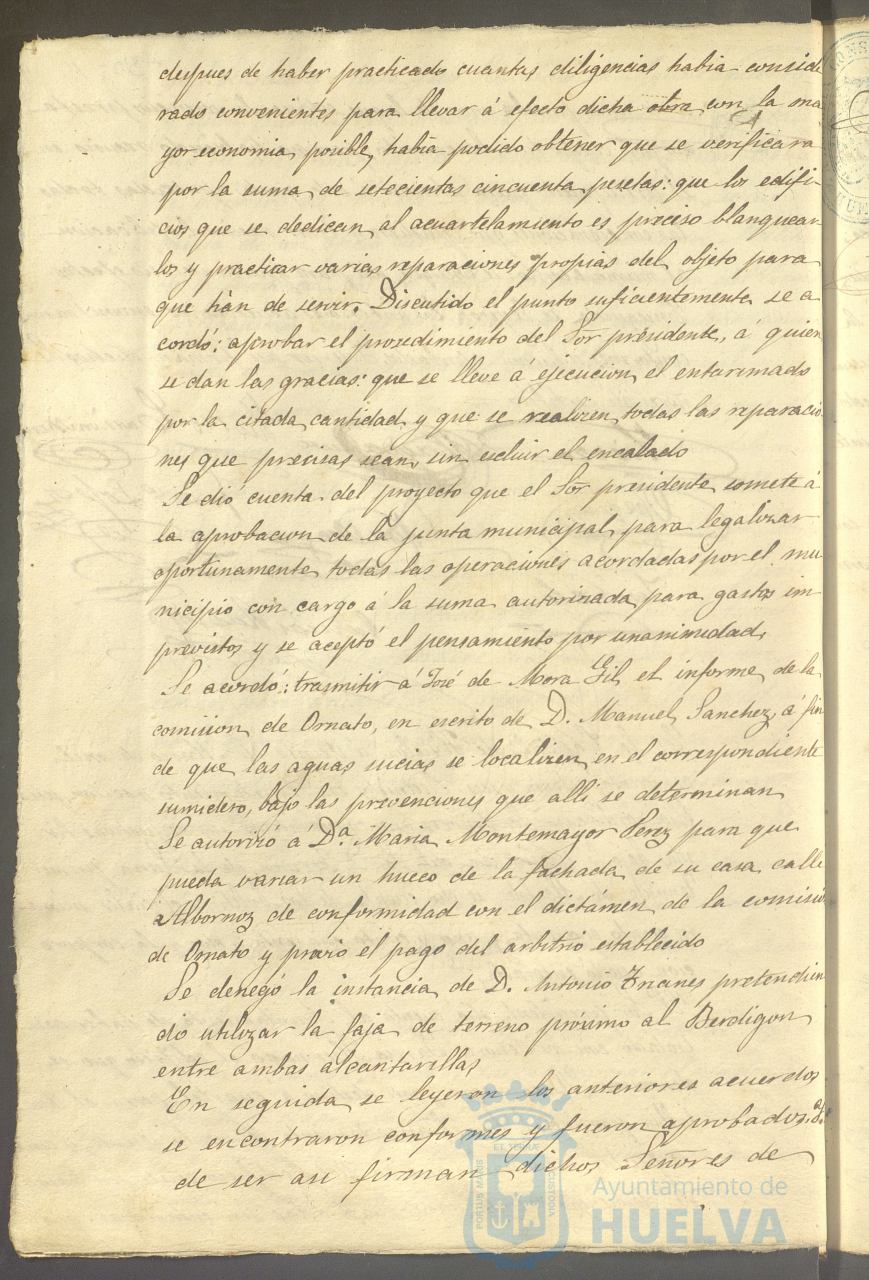 depues de haber practicado cuantas diligencias habia consid
rado convenientes para llevar á efecto dicha obra con la ma
yor economia posible, habia podido obtener que se verificara
por la suma de setecientas cincuenta pesetas: que los edifi-
cios que se dedican al acuartelamiento es preciso blanquear
los y practicar varias reparaciones propias del objeto para
que hán de servir. Discutido el punto suficientemente se a
cordó: aprobar el prosedimiento del Sor. presidente, á quien
se dan las gracias: que se lleve á ejecucion el entarimado
por la citada cantidad y que se realizen todas las reparacio
nes que precisas sean, sin escluir el encalado
Se dió cuenta del proyecto que el Sor presidente somete á
la aprobacion de la junta municipal para legalizar
oportunamente todas las operaciones acordadas por el mu
nicipio con cargo á la suma autorizada para gastos im
previstos y se aceptó el pensamiento por unanimidad.
Se acordó: trasmitir á José de Mora Gil el informe de la
comision de Ornato, en escrito de D. Manuel Sanchez, á fin
de que las aguas sucias se localizen en el correspondiente
sumidero, bajo las prevenciones que alli se determinan
Se autorizó á Da. Maria Montemayor Perez para que
pueda variar un hueco de la fachada de su casa calle
Albornoz de conformidad con el dictámen de la comisio
de Ornato y previo el pago del arbitrio establecido
Se denegó la instancia de D. Antonio Trianes pretendien
do utilizar la faja de terreno próximo al Berdigon
entre ambas alcantarillas
En seguida se leyeron los anteriores acuerdos
se encontraron conformes y fueron aprobados.
de ser asi firman dichos Señores de
PORTUS MARIS
CUSTODIA
Ayuntamiento de
HUELVA